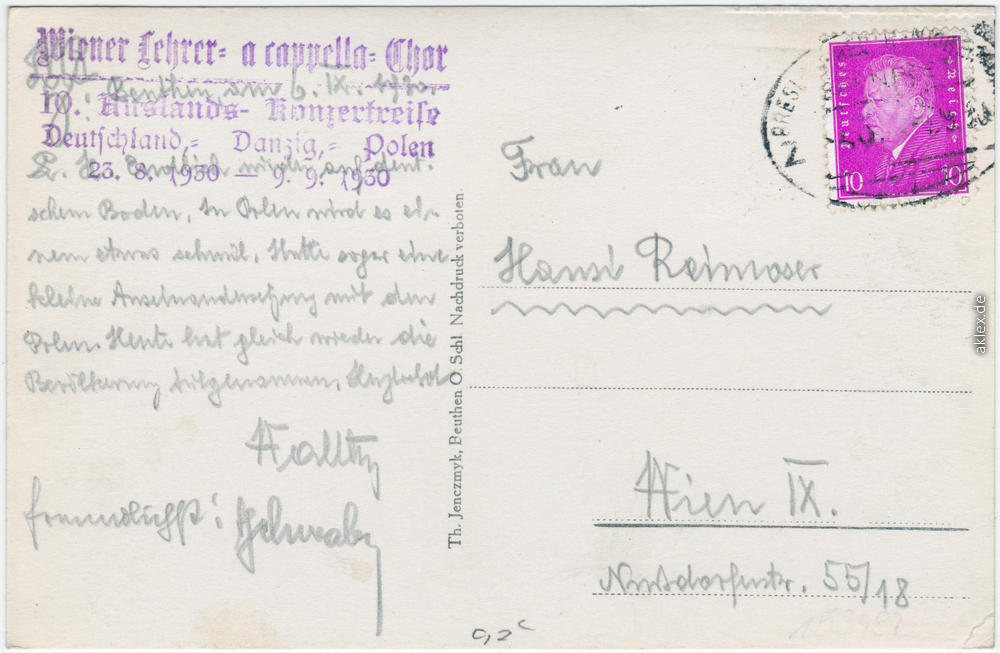 Wiener Lehrer- a cappella- Chor
Beuthen am 6. IX. 1930
10. Auslands- Konzertreise
Deutschland,- Danzig,- Polen
23. 8. 1930 — 9. 9. 1930
L. H. Endlich wieder auf deut-
schem Boden, In Polen wird es ei-
nem etwas schwül. Hatte sogar eine
kleine Auseinandersetzung mit den
Polen. Heute hat gleich wieder die
Bevölkerung teilgenommen. Herzlichst
freundlichst:
Th. Jenczmyk, Beuthen O. Schl. Nachdruck verboten
Deutsches Reich
10 10
BRESL
Frau
Hansi Reimoser
Wien IX.
Nussdorferstr. 55/18
aklex.de